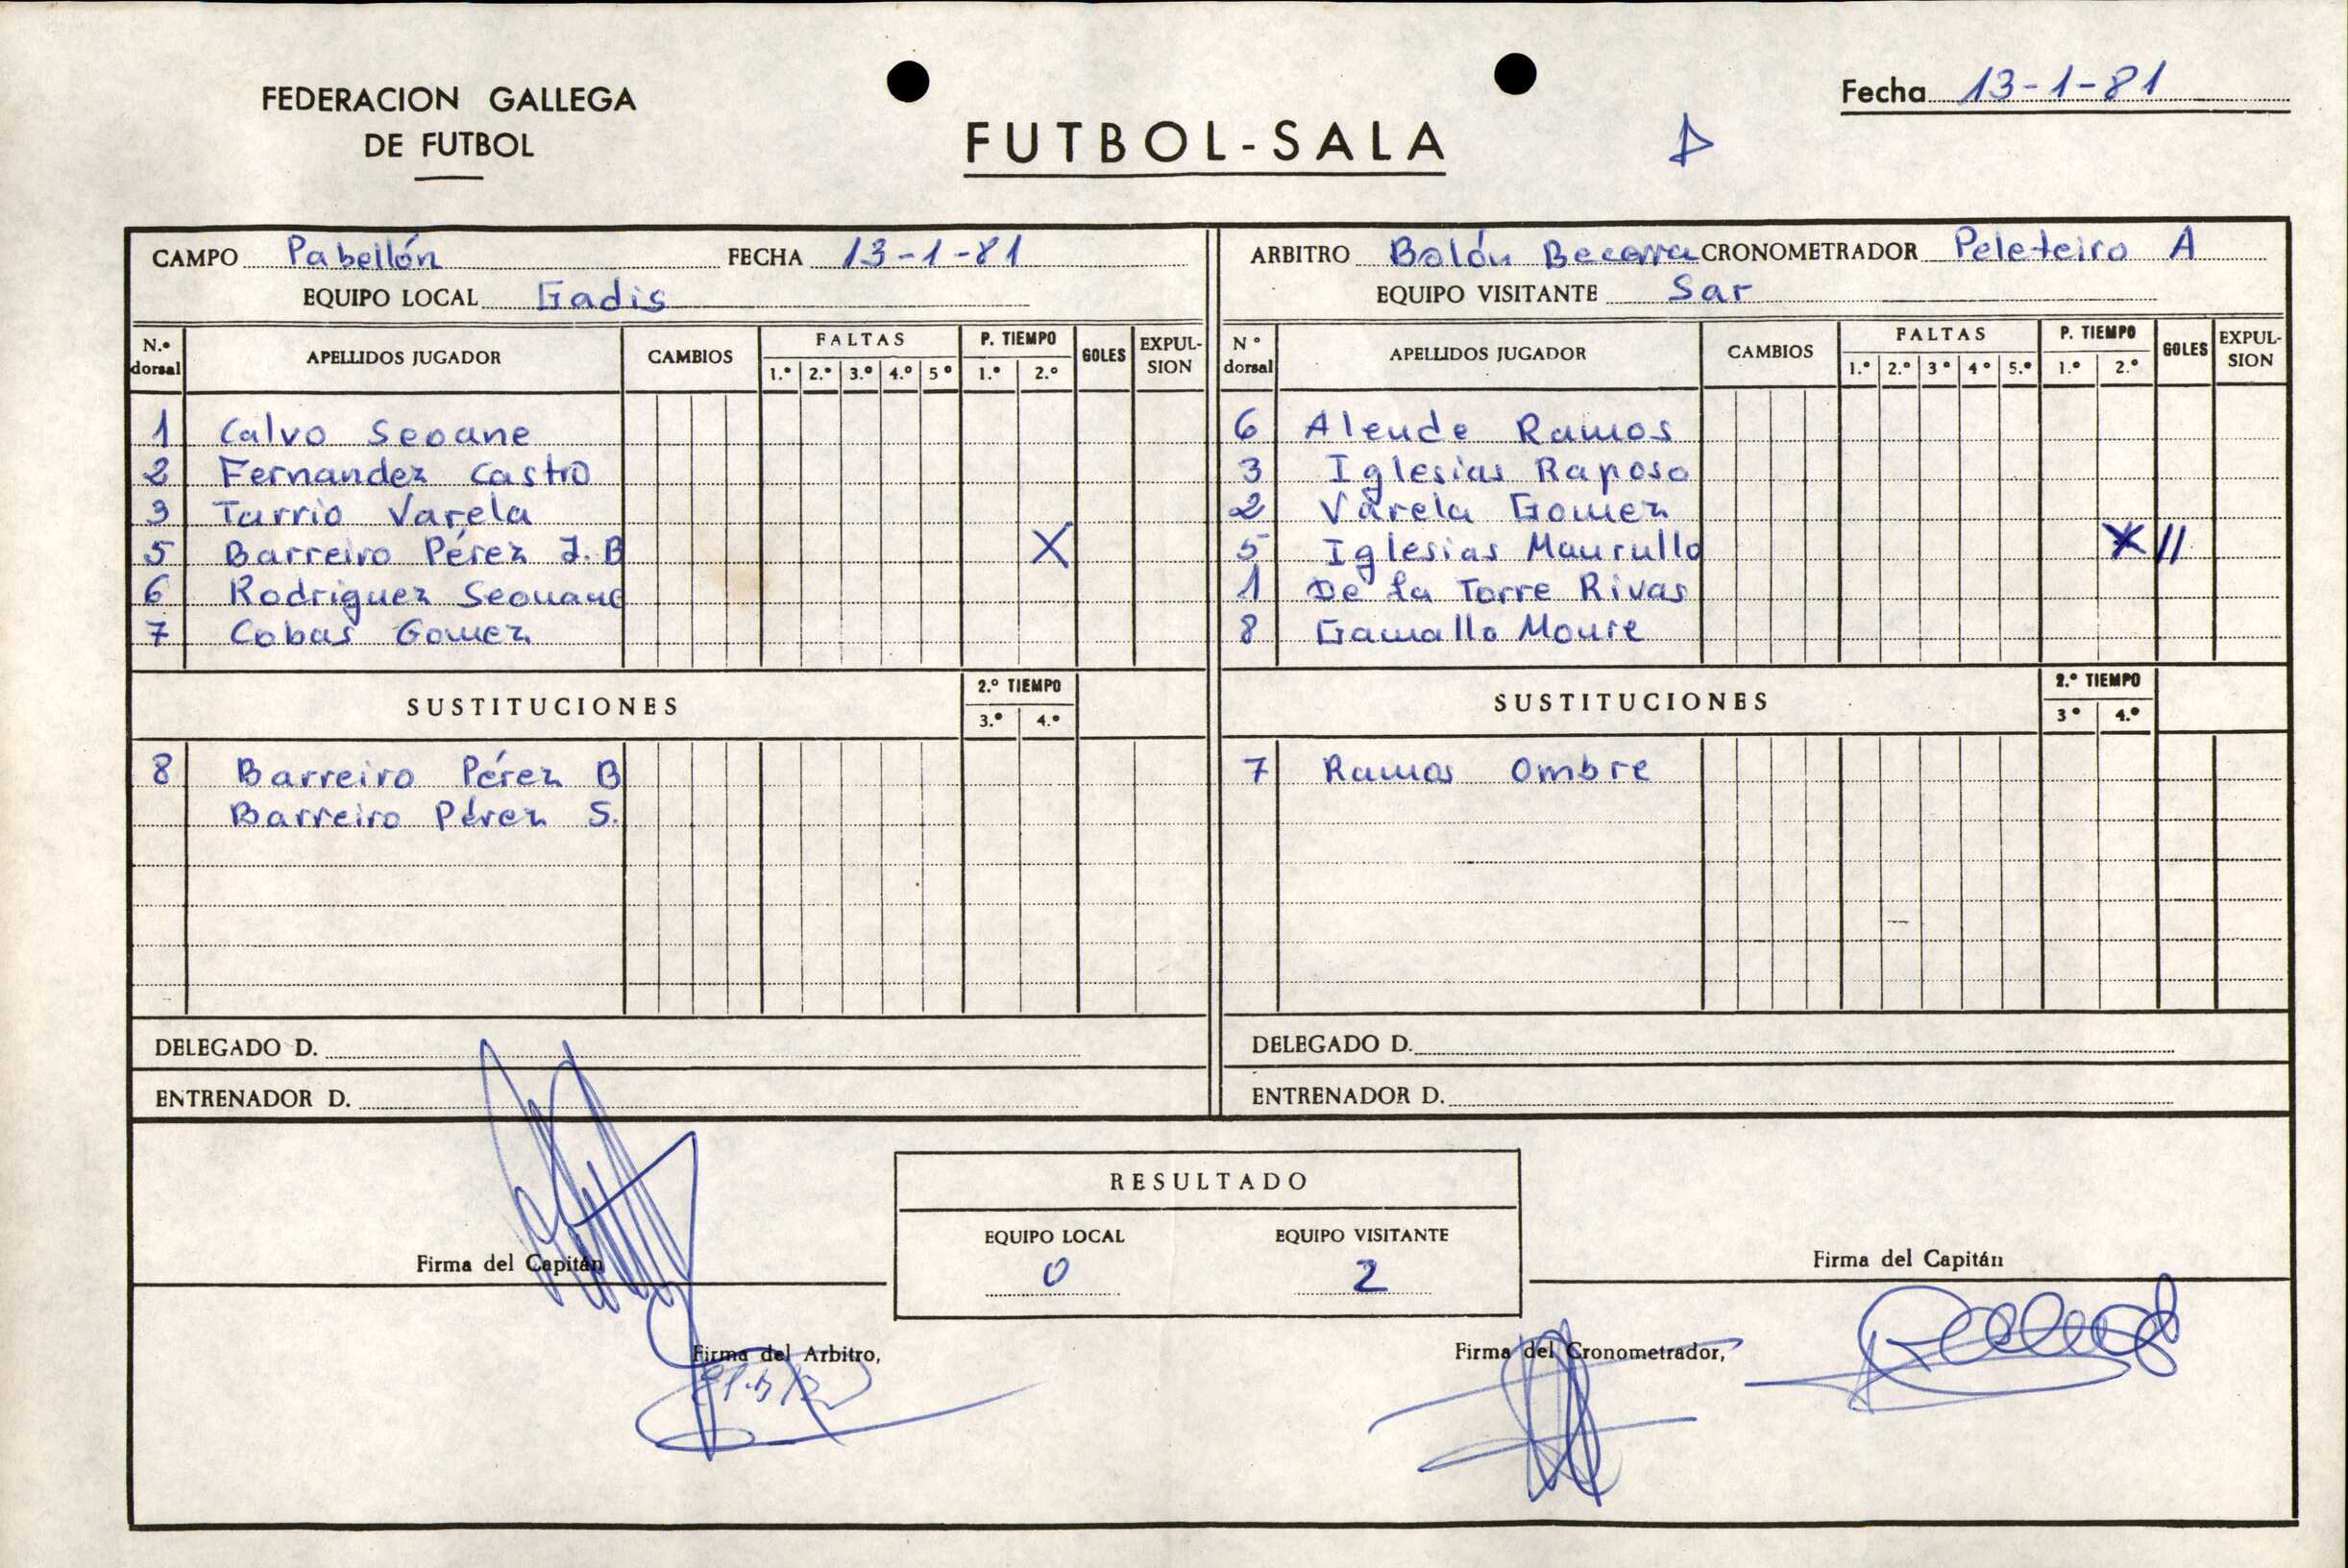 FEDERACION GALLEGA
DE FUTBOL
FUTBOL-SALA
Fecha 13-1-81
CAMPO Pabellón FECHA 13-1-81
EQUIPO LOCAL Gadis
N.º dorsal APELLIDOS JUGADOR CAMBIOS FALTAS 1.º 2.º 3.º 4.º 5º P. TIEMPO 1.º 2.º GOLES EXPULSION
1 Calvo Seoane
2 Fernandez Castro
3 Tarrio Varela
5 Barreiro Pérez J. B X
6 Rodriguez Seouane
7 Cobas Gomez
SUSTITUCIONES 2.º TIEMPO 3.º 4.º
8 Barreiro Pérez B
Barreiro Pérez S.
DELEGADO D.
ENTRENADOR D.
ARBITRO Bolón Becerra CRONOMETRADOR Peleteiro A
EQUIPO VISITANTE Sar
Nº dorsal APELLIDOS JUGADOR CAMBIOS FALTAS 1.º 2.º 3º 4º 5.º P. TIEMPO 1.º 2.º GOLES EXPULSION
6 Alende Ramos
3 Iglesias Raposo
2 Varela Gomez
5 Iglesias Maurullo X II
1 De la Torre Rivas
8 Gamallo Moure
SUSTITUCIONES 2.º TIEMPO 3º 4.º
7 Ramos Ombre
DELEGADO D.
ENTRENADOR D.
RESULTADO
EQUIPO LOCAL EQUIPO VISITANTE
0 2
Firma del Capitán
Firma del Capitán
Firma del Arbitro,
Firma del Cronometrador,